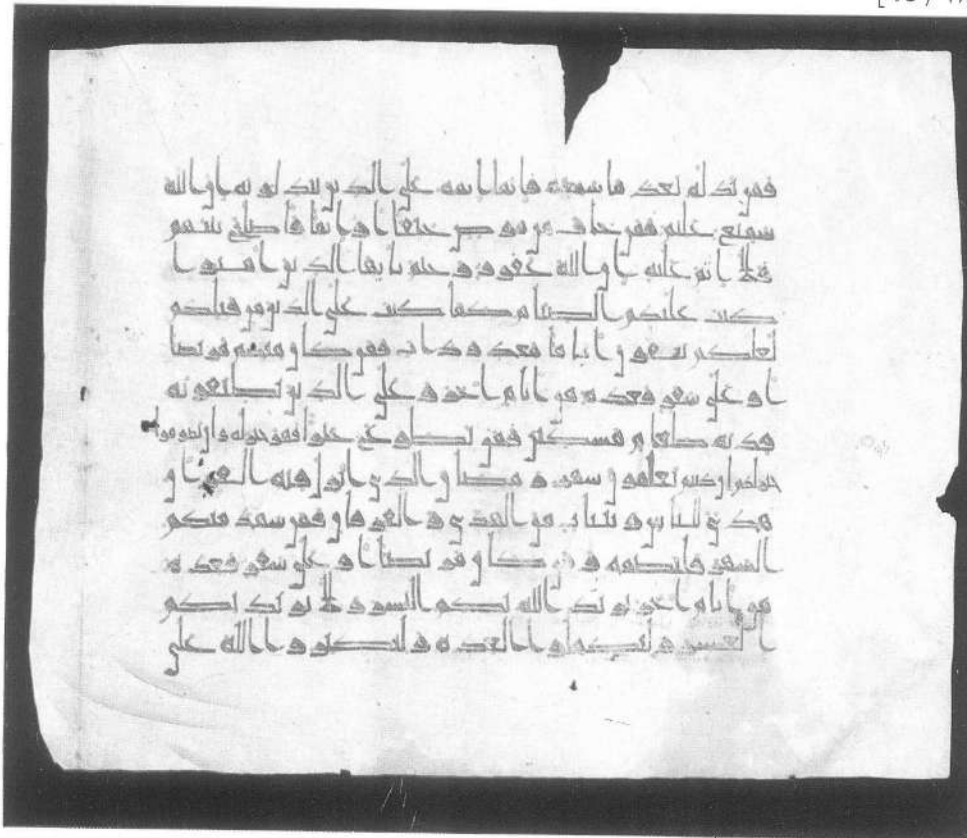 فمن بدله بعد ما سمعه فإنما إثمه على الذين يبدلونه إن الله
سميع عليم فمن خاف من موص جنفا أو إثما فأصلح بينهم
فلا إثم عليه إن الله غفور رحيم يأيها الذين أمنوا
كتب عليكم الصيام كما كتب على الذين من قبلكم
لعلكم تتقون أياما معدودات فمن كان منكم مريضا
أو على سفر فعدة من أيام أخر وعلى الذين يطيقونه
فدية طعام مسكين فمن تطوع خيرا فهو خير له وأن تصوموا
خير لكم إن كنتم تعلمون شهر رمضان الذي أنزل فيه القرأن
هدى للناس وبينات من الهدى والفرقان فمن شهد منكم
الشهر فليصمه ومن كان مريضا أو على سفر فعدة
من أيام أخر يريد الله بكم اليسر ولا يريد بكم
العسر ولتكملوا العدة ولتكبروا الله على